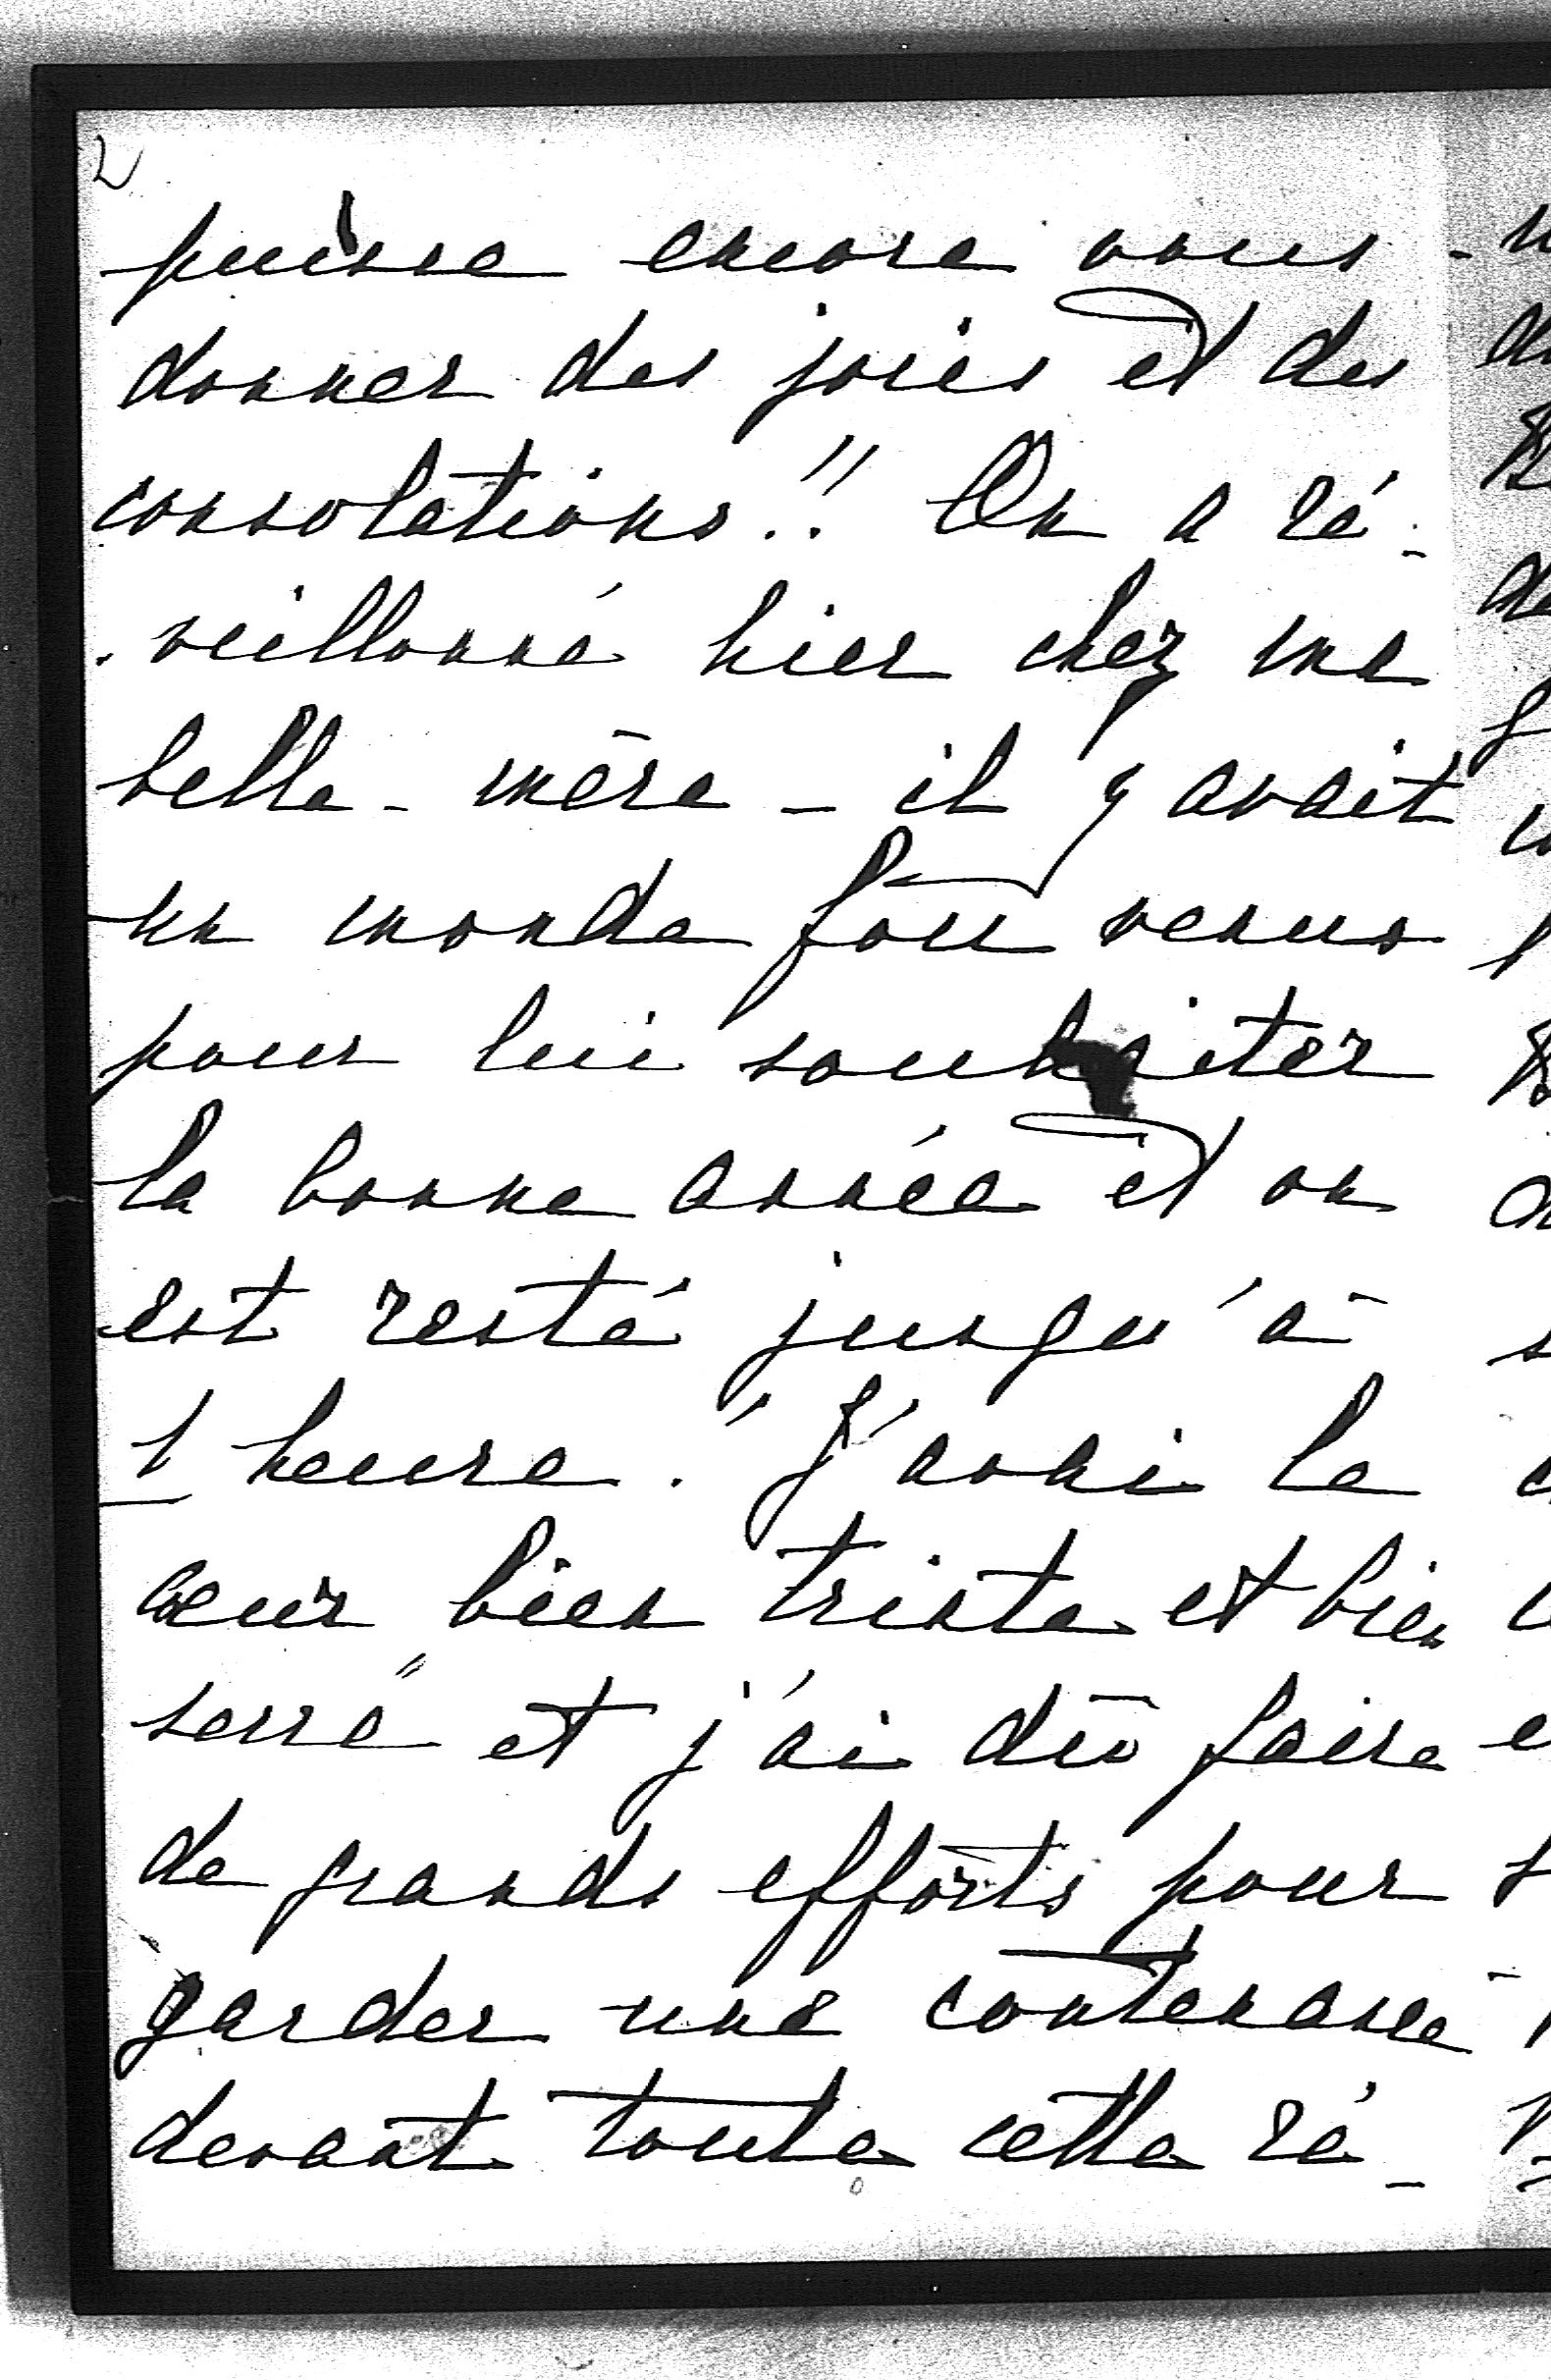 2
puisse encore vous
donner des joies et des
consolations!! On a ré-
veillonné hier chez ma
belle-mère - il y avait
un monde fou venus
pour lui souhaiter
la bonne année et on
est resté jusqu'à
1 heure. J'avai le
cœur bien triste et bien
serré et j'ai dû faire
de grands efforts pour
garder une contenance
devant toute cette ré-